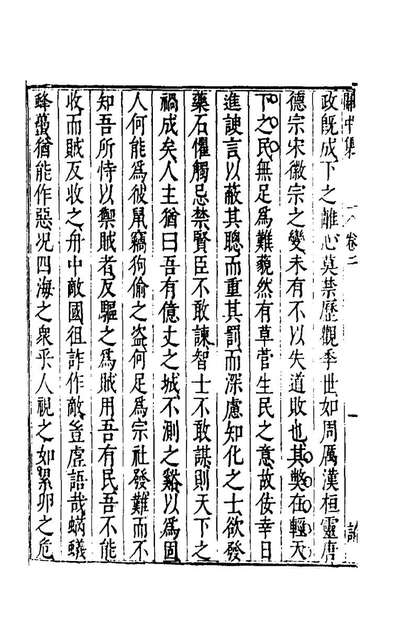 關中集 卷二 一 論
政旣成下之離心莫禁歷觀季世如周厲漢桓靈唐
德宗宋徽宗之變未有不以失道敗也其獘在輕天
下之民無足爲難藐然有草菅生民之意故佞幸日
進諛言以蔽其聰而重其罰而深慮知化之士欲發
藥石懼觸忌禁賢臣不敢諫智士不敢謀則天下之
禍成矣人主猶曰吾有億丈之城不測之谿以爲固
人何能爲彼鼠竊狗偷之盗何足爲宗社發難而不
知吾所恃以禦賊者反驅之爲賊用吾有民吾不能
收而賊反收之舟中敵國徂詐作敵豈虛語哉螨蟻
蜂蠆猶能作惡况四海之衆乎人視之如累卵之危